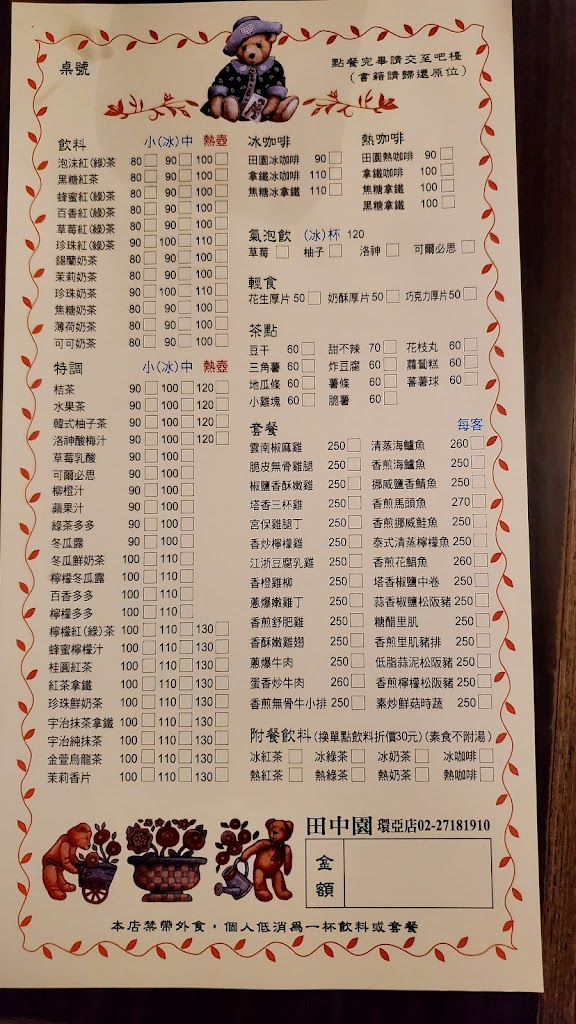 桌號
點餐完畢請交至吧檯
(書籍請歸還原位)
飲料 小(冰)中 熱壺
泡沫紅(綠)茶 80 90 100
黑糖紅茶 80 90 100
蜂蜜紅(綠)茶 80 90 100
百香紅(綠)茶 80 90 100
草莓紅(綠)茶 80 90 100
珍珠紅(綠)茶 90 100 110
錫蘭奶茶 80 90 100
茉莉奶茶 80 90 100
珍珠奶茶 90 100 110
焦糖奶茶 80 90 100
薄荷奶茶 80 90 100
可可奶茶 80 90 100
特調 小(冰)中 熱壺
桔茶 90 100 120
水果茶 90 100 120
韓式柚子茶 90 100 120
洛神酸梅汁 90 100 120
草莓乳酸 90 100
可爾必思 90 100
柳橙汁 90 100
蘋果汁 90 100
綠茶多多 90 100
冬瓜露 90 100
冬瓜鮮奶茶 100 110
檸檬冬瓜露 100 110
百香多多 100 110
檸檬多多 100 110
檸檬紅(綠)茶 100 110 130
蜂蜜檸檬汁 100 110 130
桂圓紅茶 100 110 130
紅茶拿鐵 100 110 130
珍珠鮮奶茶 100 110 130
宇治抹茶拿鐵 100 110 130
宇治純抹茶 100 110 130
金萱烏龍茶 100 110 130
茉莉香片 100 110 130
冰咖啡
田園冰咖啡 90
拿鐵冰咖啡 110
焦糖冰拿鐵 110
熱咖啡
田園熱咖啡 90
拿鐵咖啡 100
焦糖拿鐵 100
黑糖拿鐵 100
氣泡飲 (冰)杯 120
草莓 柚子 洛神 可爾必思
輕食
花生厚片 50 奶酥厚片 50 巧克力厚片 50
茶點
豆干 60 甜不辣 70 花枝丸 60
三角薯 60 炸豆腐 60 蘿蔔糕 60
地瓜條 60 薯條 60 蕃薯球 60
小雞塊 60 脆薯 60
套餐 每客
雲南椒麻雞 250 清蒸海鱸魚 260
脆皮無骨雞腿 250 香煎海鱸魚 250
椒鹽香酥嫩雞 250 挪威鹽香鯖魚 250
塔香三杯雞 250 香煎馬頭魚 270
宮保雞腿丁 250 香煎挪威鮭魚 250
香炒檸檬雞 250 泰式清蒸檸檬魚 250
江浙豆腐乳雞 250 香煎花鯧魚 260
香橙雞柳 250 塔香椒鹽中卷 250
蔥爆嫩雞丁 250 蒜香椒鹽松阪豬 250
香煎舒肥雞 250 糖醋里肌 250
香酥嫩雞翅 250 香煎里肌豬排 250
蔥爆牛肉 250 低脂蒜泥松阪豬 250
蛋香炒牛肉 260 香煎檸檬松阪豬 250
香煎無骨牛小排 250 素炒鮮菇時蔬 250
附餐飲料 (換單點飲料折價30元) (素食不附湯)
冰紅茶 冰綠茶 冰奶茶 冰咖啡
熱紅茶 熱綠茶 熱奶茶 熱咖啡
田中園 環亞店02-27181910
金額
本店禁帶外食，個人低消為一杯飲料或套餐